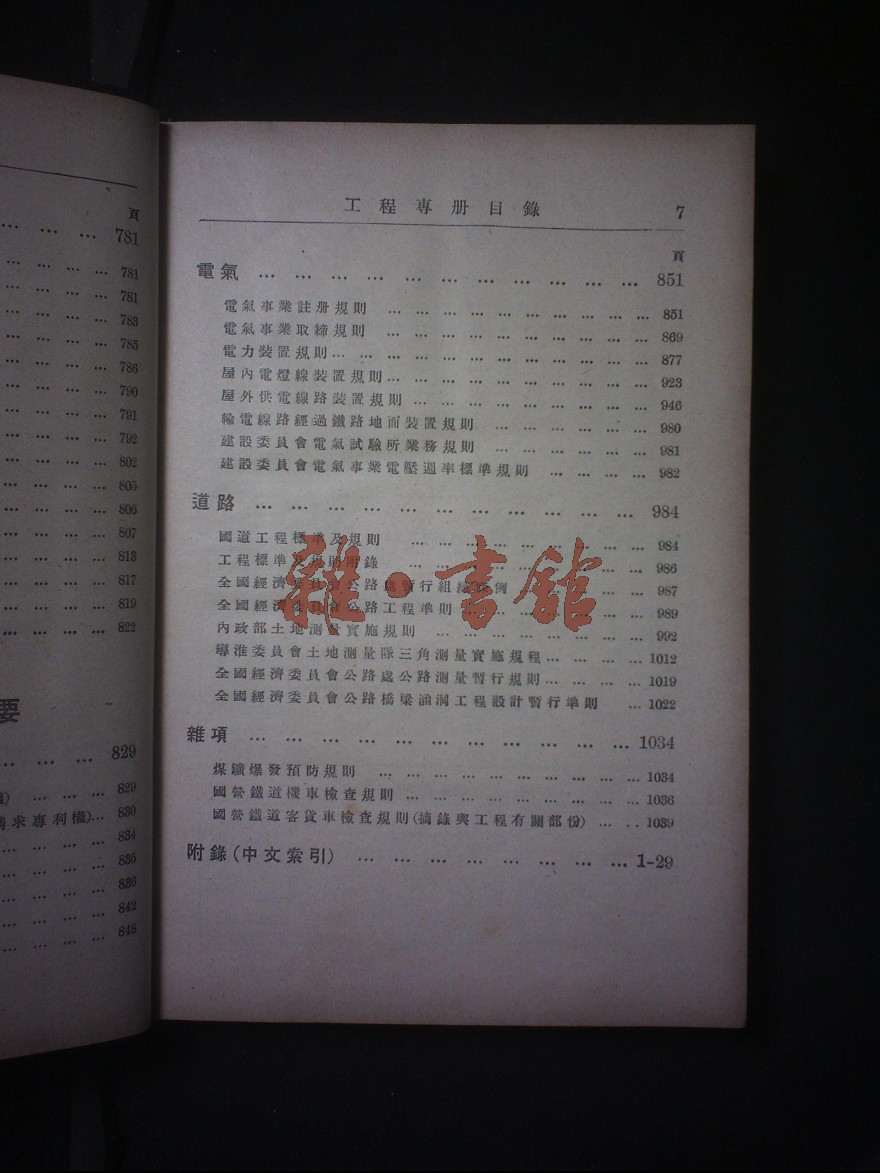 頁
781
781
781
783
785
786
790
791
792
802
805
806
807
813
817
819
822
要
829
829
求專利權)... 830
834
835
836
842
848
工程專册目錄 7
頁
電氣 ... ... ... ... ... ... ... ... ... ... ... 851
電氣事業註册規則 ... ... ... ... ... ... ... ... 851
電氣事業取締規則 ... ... ... ... ... ... ... ... 869
電力裝置規則... ... ... ... ... ... ... ... ... 877
屋內電燈線裝置規則... ... ... ... ... ... ... ... 923
屋外供電線路裝置規則 ... ... ... ... ... ... ... 946
輸電線路經過鐵路地面裝置規則 ... ... ... ... 980
建設委員會電氣試驗所業務規則 ... ... ... ... 981
建設委員會電氣事業電壓週率標準規則 ... ... ... 982
道路 ... ... ... ... ... ... ... ... ... ... ... 984
國道工程標準及規則 ... ... ... ... ... ... ... 984
工程標準及規則附錄 ... ... ... ... ... ... ... 986
全國經濟委員會公路處暫行組織條例 ... ... ... 987
全國經濟委員會公路工程準則 ... ... ... ... ... 989
內政部土地測量實施規則 ... ... ... ... ... ... 992
導淮委員會土地測量隊三角測量實施規程... ... ... 1012
全國經濟委員會公路處公路測量暫行規則... ... ... 1019
全國經濟委員會公路橋梁涵洞工程設計暫行準則 ... 1022
雜項 ... ... ... ... ... ... ... ... ... ... ... 1034
煤鑛爆發預防規則 ... ... ... ... ... ... ... ... 1034
國營鐵道機車檢查規則 ... ... ... ... ... ... ... 1036
國營鐵道客貨車檢查規則(摘錄與工程有關部份) ... .. 1039
附錄(中文索引) ... ... ... ... ... ... ... ... 1-29
雜·書館